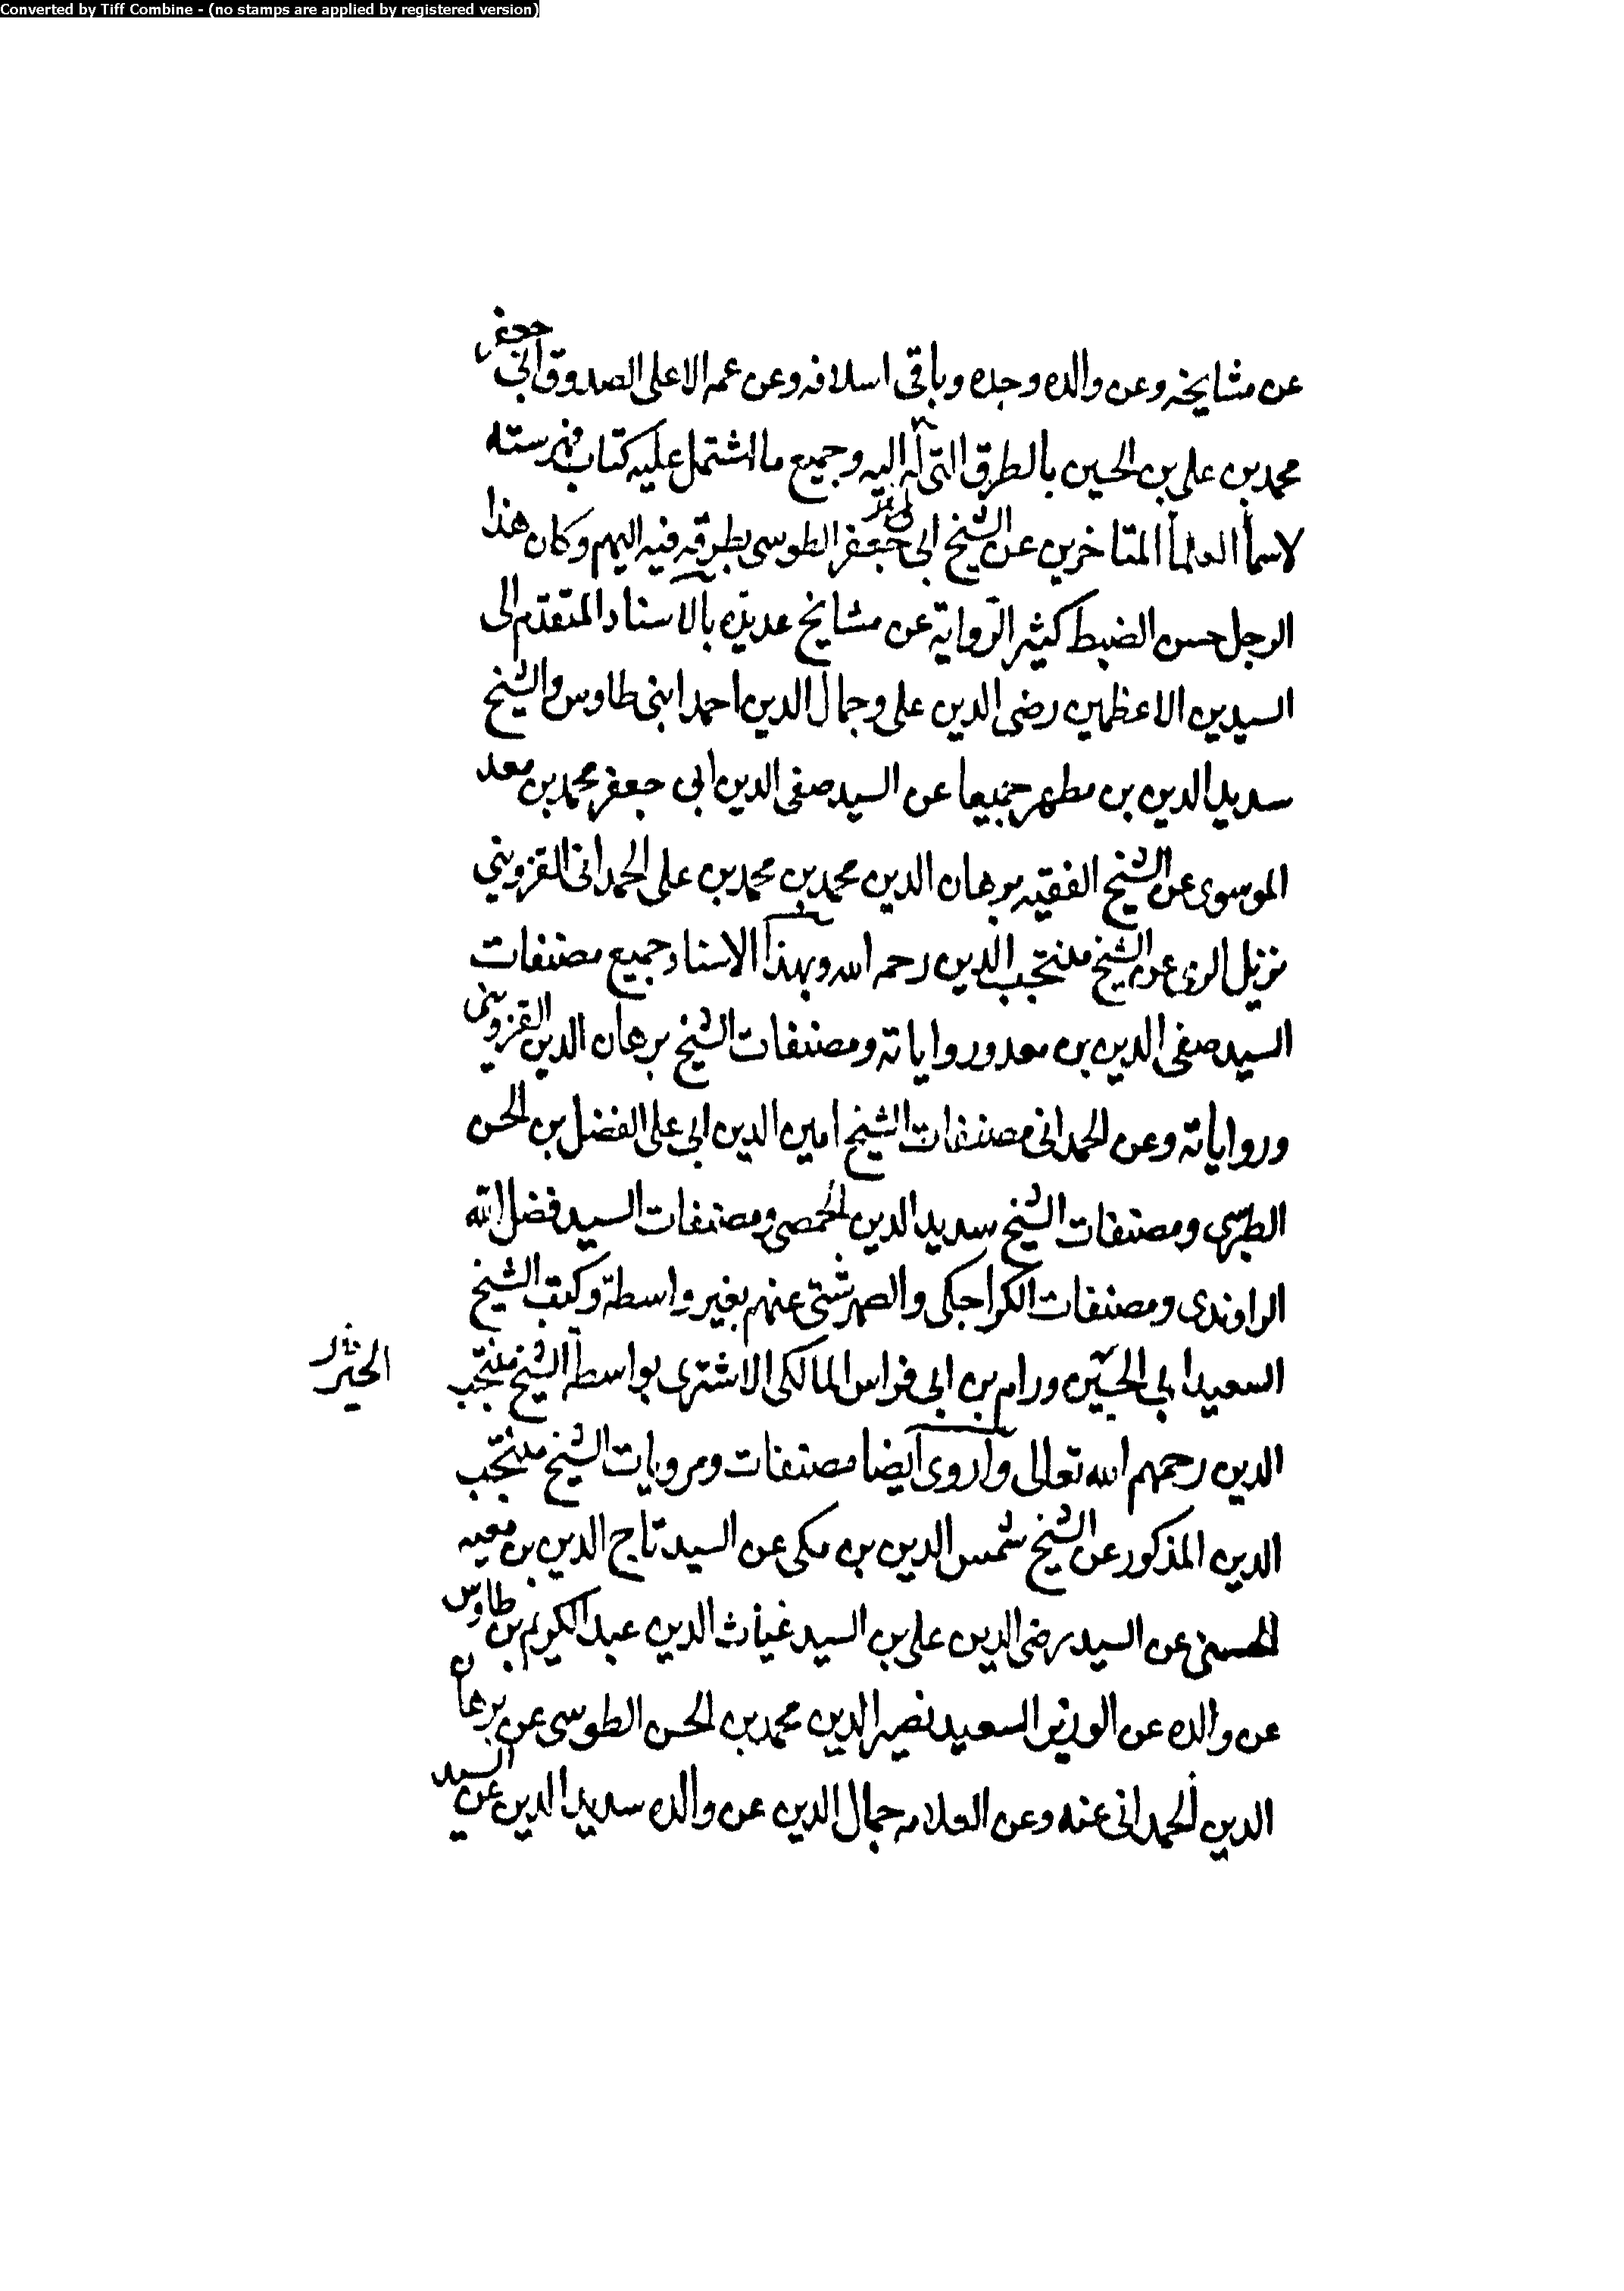 Converted by Tiff Combine - (no stamps are applied by registered version)
عن مشايخه وعن والده وجده وباقى اسلافه وعن عمه الاعلى الصدوق ابى جعفر
محمد بن على بن الحسين بالطرق التى له اليه وجميع ما اشتمل عليه كتاب فهرسته
لاسمآ العلمآ المتاخرين عن الشيخ ابى جعفر الطوسى بطرقه فيه اليهم وكان هذا
الرجل حسن الضبط كثير الرواية عن مشايخ عديدة بالاسناد المتقدم الى
السيدين الاعظمين رضى الدين على وجمال الدين احمد ابنى طاوس والشيخ
سديد الدين بن مطهر جميعا عن السيد صفى الدين ابى جعفر محمد بن معد
الموسوى عن الشيخ الفقيه برهان الدين محمد بن محمد بن على الحمدانى القزوينى
نزيل الرى عن الشيخ منتجب الدين رحمه الله وبهذا الاسناد جميع مصنفات
السيد صفى الدين بن معد ورواياته ومصنفات الشيخ برهان الدين القزوينى
ورواياته وعن الحمدانى مصنفات الشيخ امين الدين ابى على الفضل بن الحسن
الطبرسى ومصنفات الشيخ سديد الدين الحمصى ومصنفات السيد فضل الله
الراوندى ومصنفات الكراجكى والصهرشتى عنهم بغير واسطة وكتب الشيخ
السعيد ابى الحسين ورام بن ابى فراس المالكى الاشترى بواسطة الشيخ منتجب
الدين رحمهم الله تعالى واروى ايضا مصنفات ومرويات الشيخ منتجب
الدين المذكور عن الشيخ شمس الدين بن مكى عن السيد تاج الدين بن معيه
الحسنى عن السيد رضى الدين على بن السيد غياث الدين عبد الكريم بن طاوس
عن والده عن الوزير السعيد نصير الدين محمد بن الحسن الطوسى عن برهان
الدين الحمدانى عنه وعن العلامه جمال الدين عن والده سديد الدين عن السيد